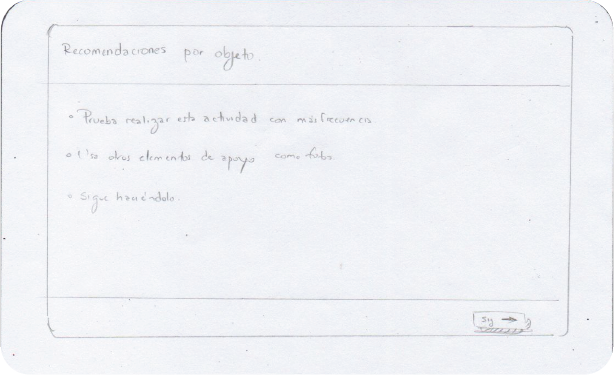 Recomendaciones por objeto.
Prueba realizar esta actividad con más frecuencia
Usa otros elementos de apoyo como fotos
Sigue haciéndolo.
Sig →